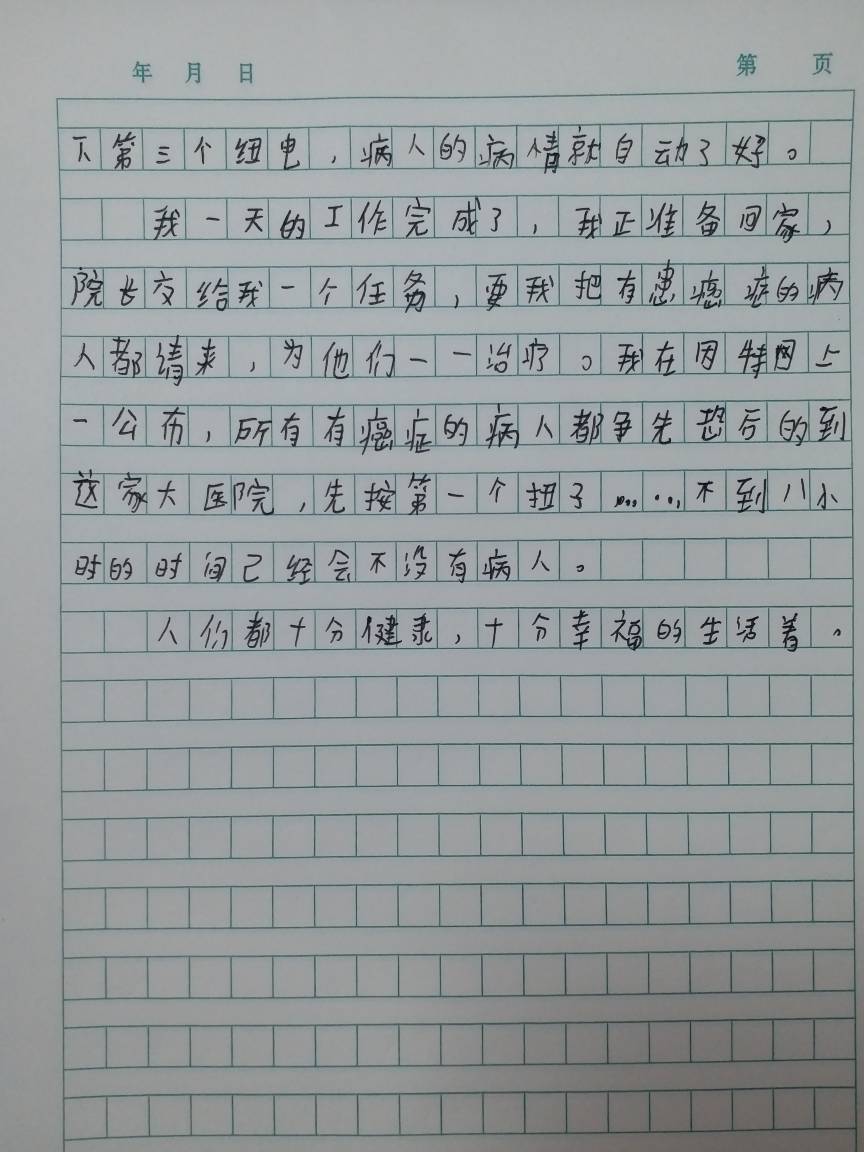 年 月 日 第 页
下第三个纽电，病人的病情就自动了好。
我一天的工作完成了，我正准备回家，
院长交给我一个任务，要我把有患癌症的病
人都请来，为他们一一治疗。我在因特网上
一公布，所有有癌症的病人都争先恐后的到
这家大医院，先按第一个扭子……不到八小
时的时间已经会不没有病人。
人们都十分健康，十分幸福的生活着。